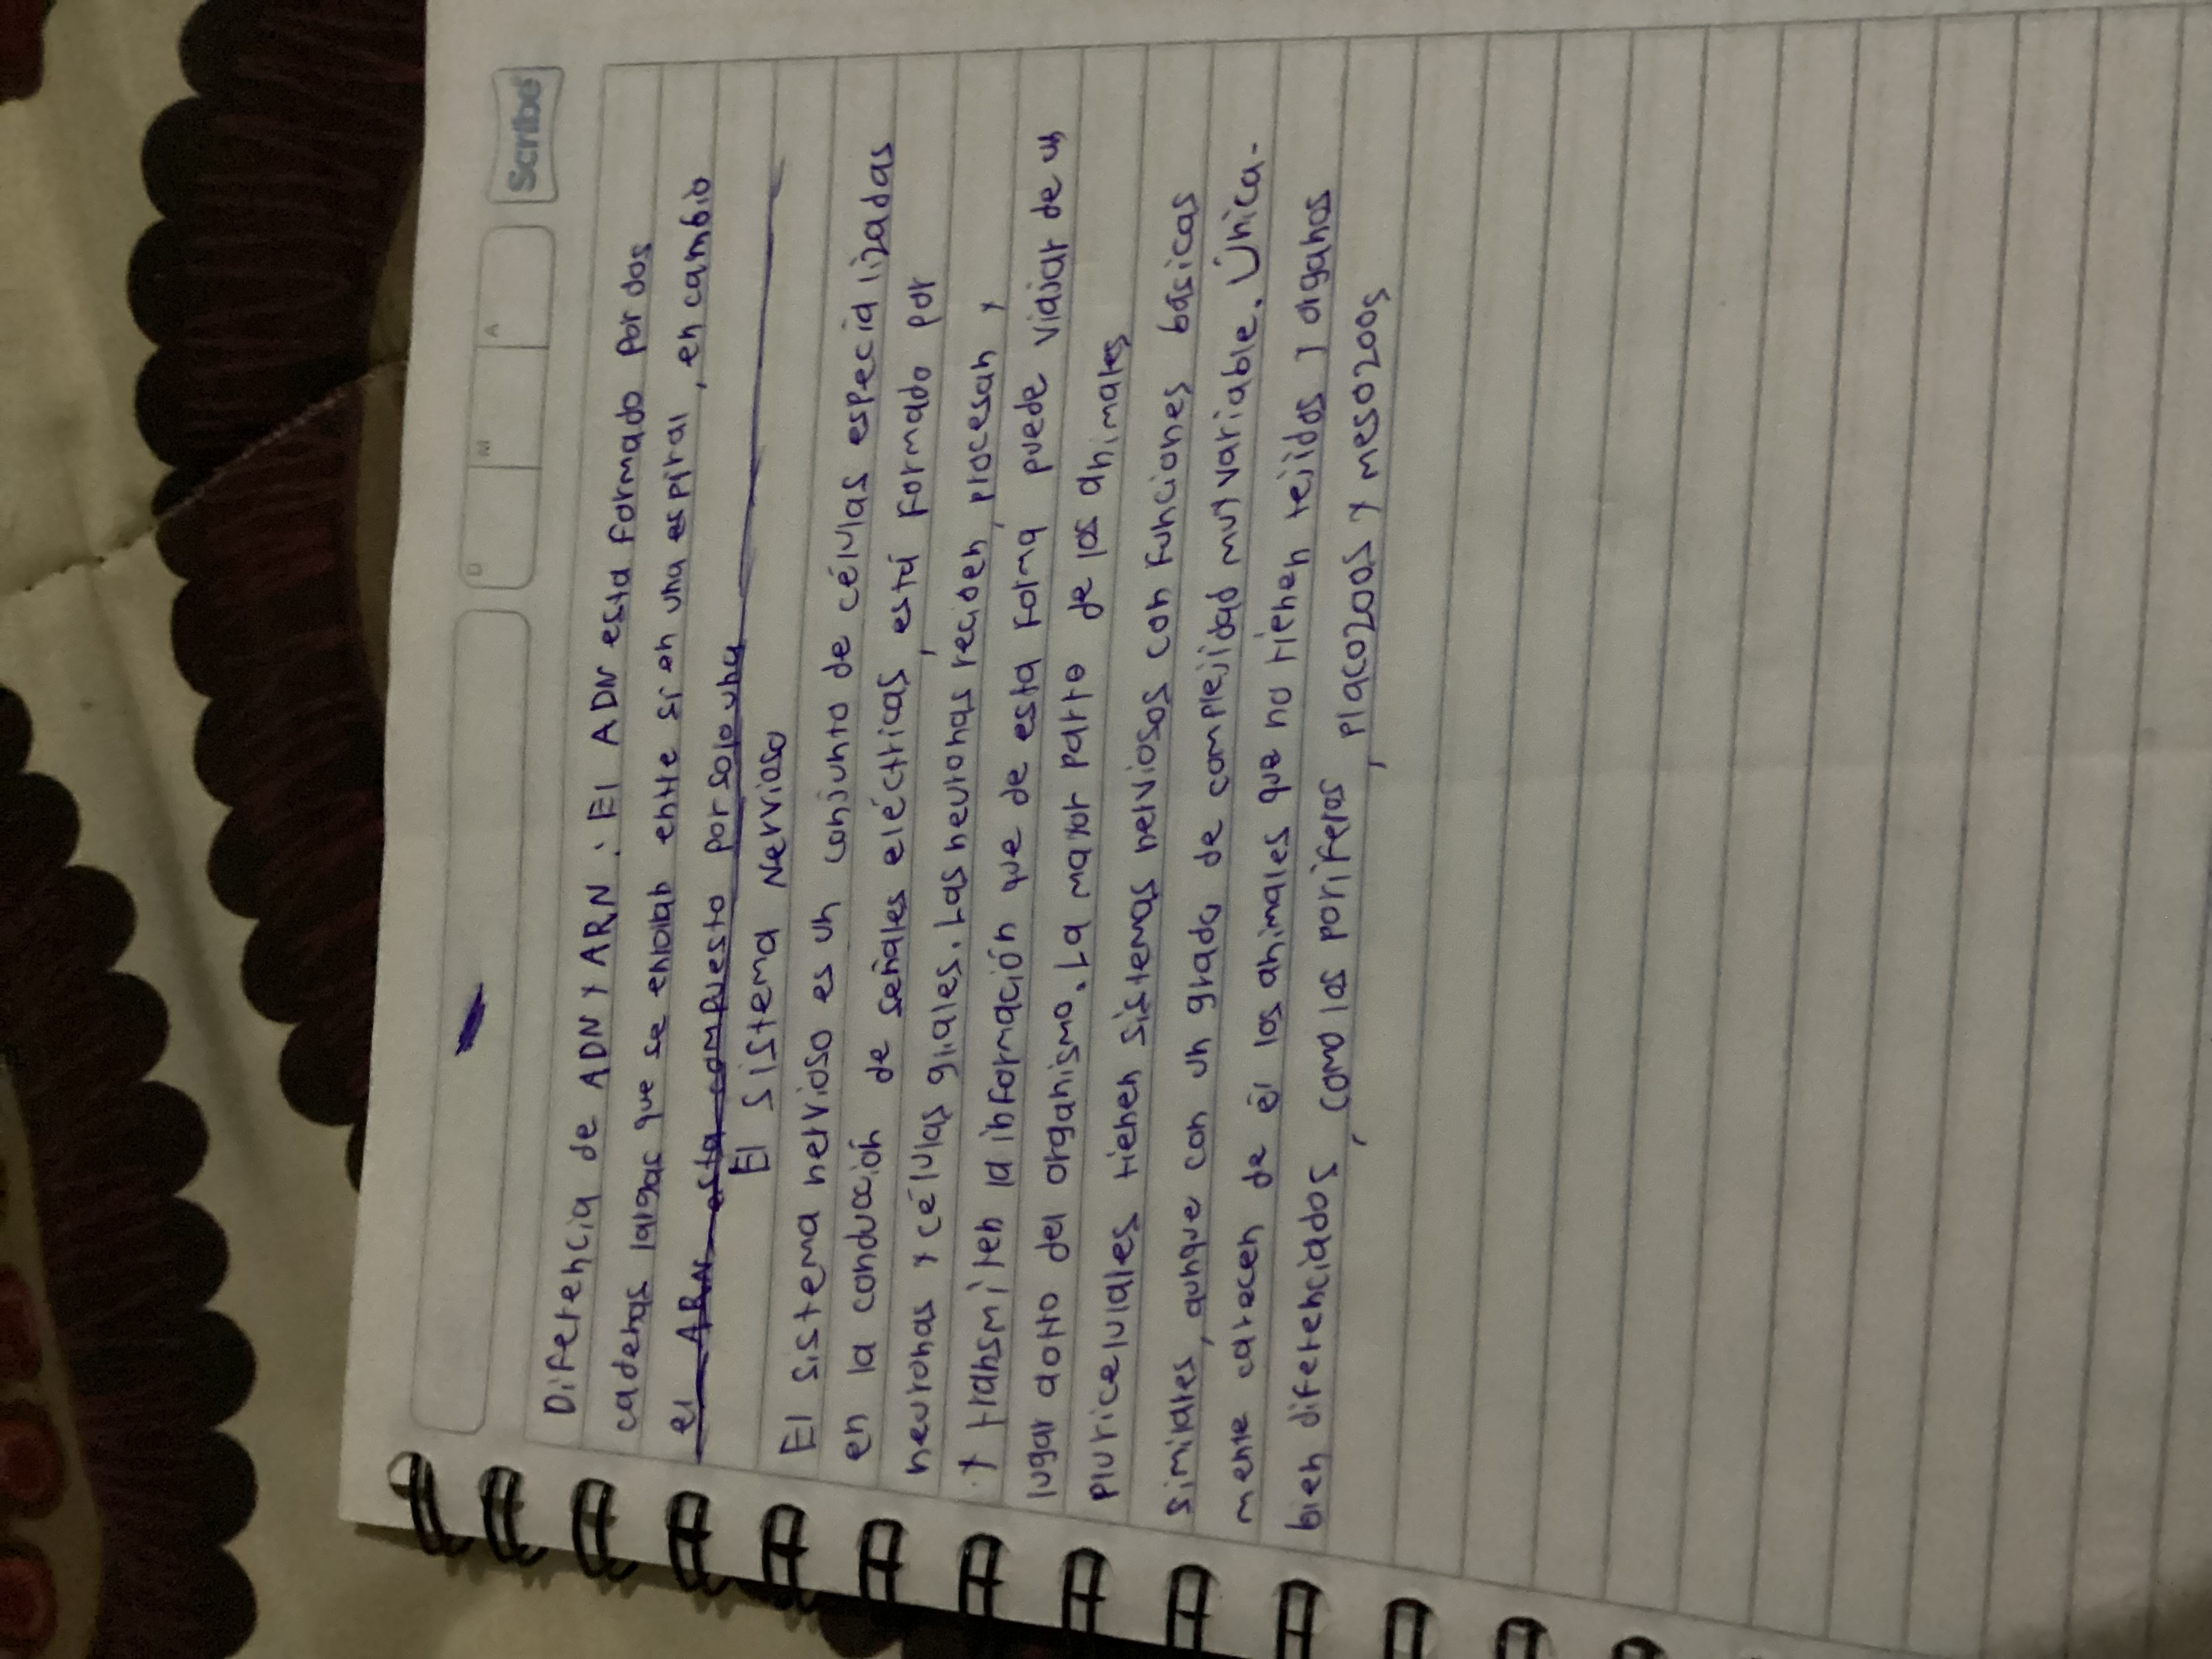 Scribe
D M A
Diferencia de ADN y ARN: El ADN esta formado por dos
cadenas largas que se enrolan entre si en una espiral, en cambio
el ARN esta compuesto por solo una
El Sistema Nervioso
El sistema nervioso es un conjunto de células especializadas
en la conducción de señales eléctricas, está formado por
neuronas y células gliales. Las neuronas reciben, procesan y
y transmiten la información que de esta forma puede viajar de un
lugar a otro del organismo. La mayor parte de los animales
pluricelulales tienen sistemas nerviosos con funciones básicas
similares, aunque con un grado de complejidad muy variable. Única-
mente carecen de él los animales que no tienen tejidos y organos
bien diferenciados, como los poriferos, placozoos y mesozoos